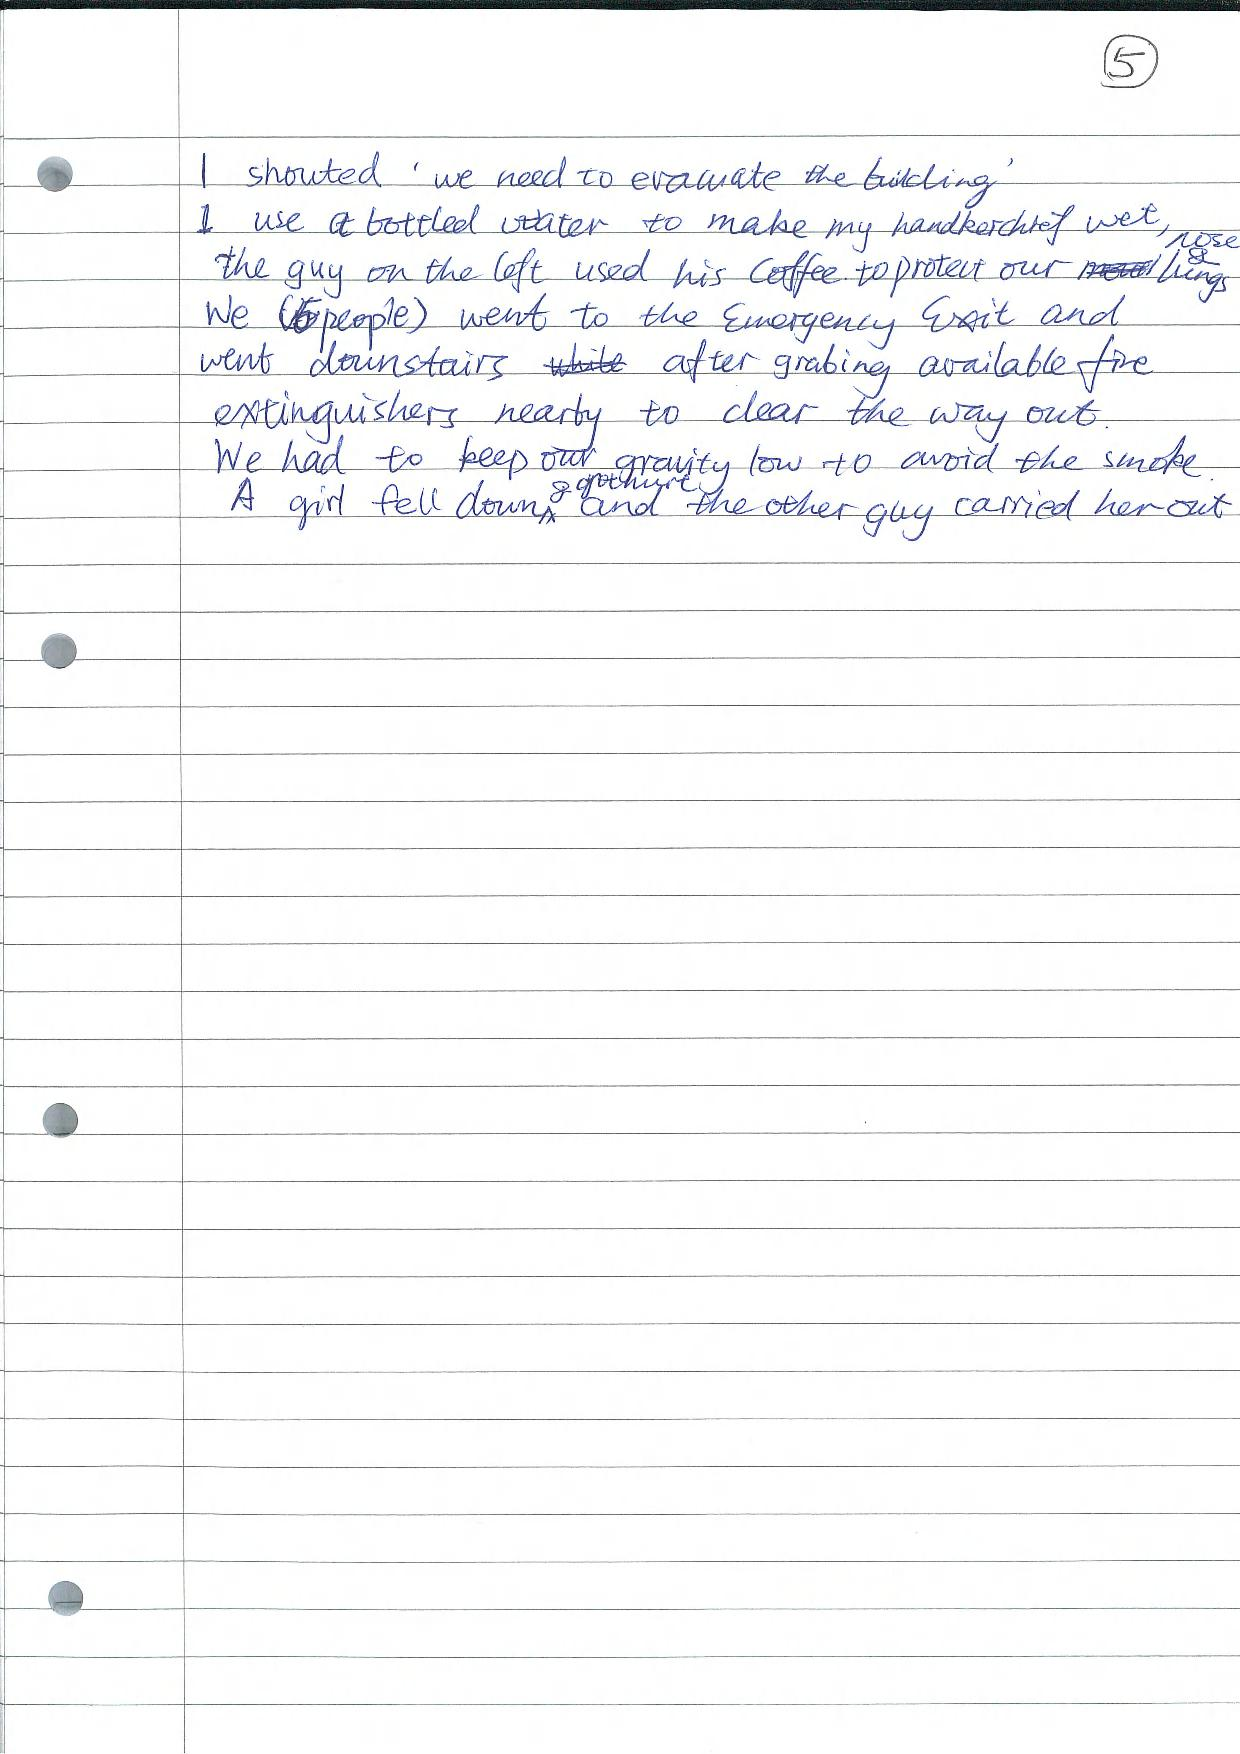 5
I shouted 'we need to evacuate the building'
I use a bottled water to make my handkerchief wet,
the guy on the left used his Coffee to protect our nose & lungs
We (5 people) went to the Emergency Exit and
went downstairs while after grabing available fire
extinguishers nearby to clear the way out.
We had to keep our gravity low to avoid the smoke.
A girl fell down & got hurt and the other guy carried her out